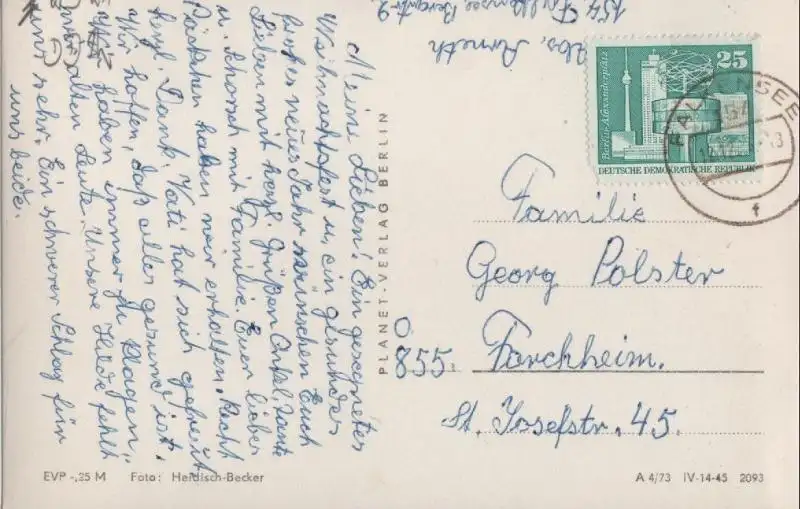 Meine Lieben! Ein gesegnetes
Weihnachtsfest u. ein gesundes
frohes neues Jahr wünschen Euch
Lieben mit herzl. Grüßen Onkel, Tante
u. Schorsch mit Familie. Euer lieber
Päckchen haben wir erhalten. Recht
herzl. Dank. Vati hat sich gefreut
Wir hoffen, daß alles gesund ist.
Wir haben immer zu klagen,
wir alten Leute. Unsere Hilde fehlt
uns sehr. Ein schwerer Schlag für
uns beide.
PLANET-VERLAG BERLIN
154. Falkensee Bergstr. 2
Abs. Arneth
25
Berlin-Alexanderplatz
DEUTSCHE DEMOKRATISCHE REPUBLIK
FALKENSEE
f
Familie
Georg Polster
855. Forchheim.
St. Josefstr. 45.
EVP -,25 M Foto: Heidisch-Becker
A 4/73 IV-14-45 2093